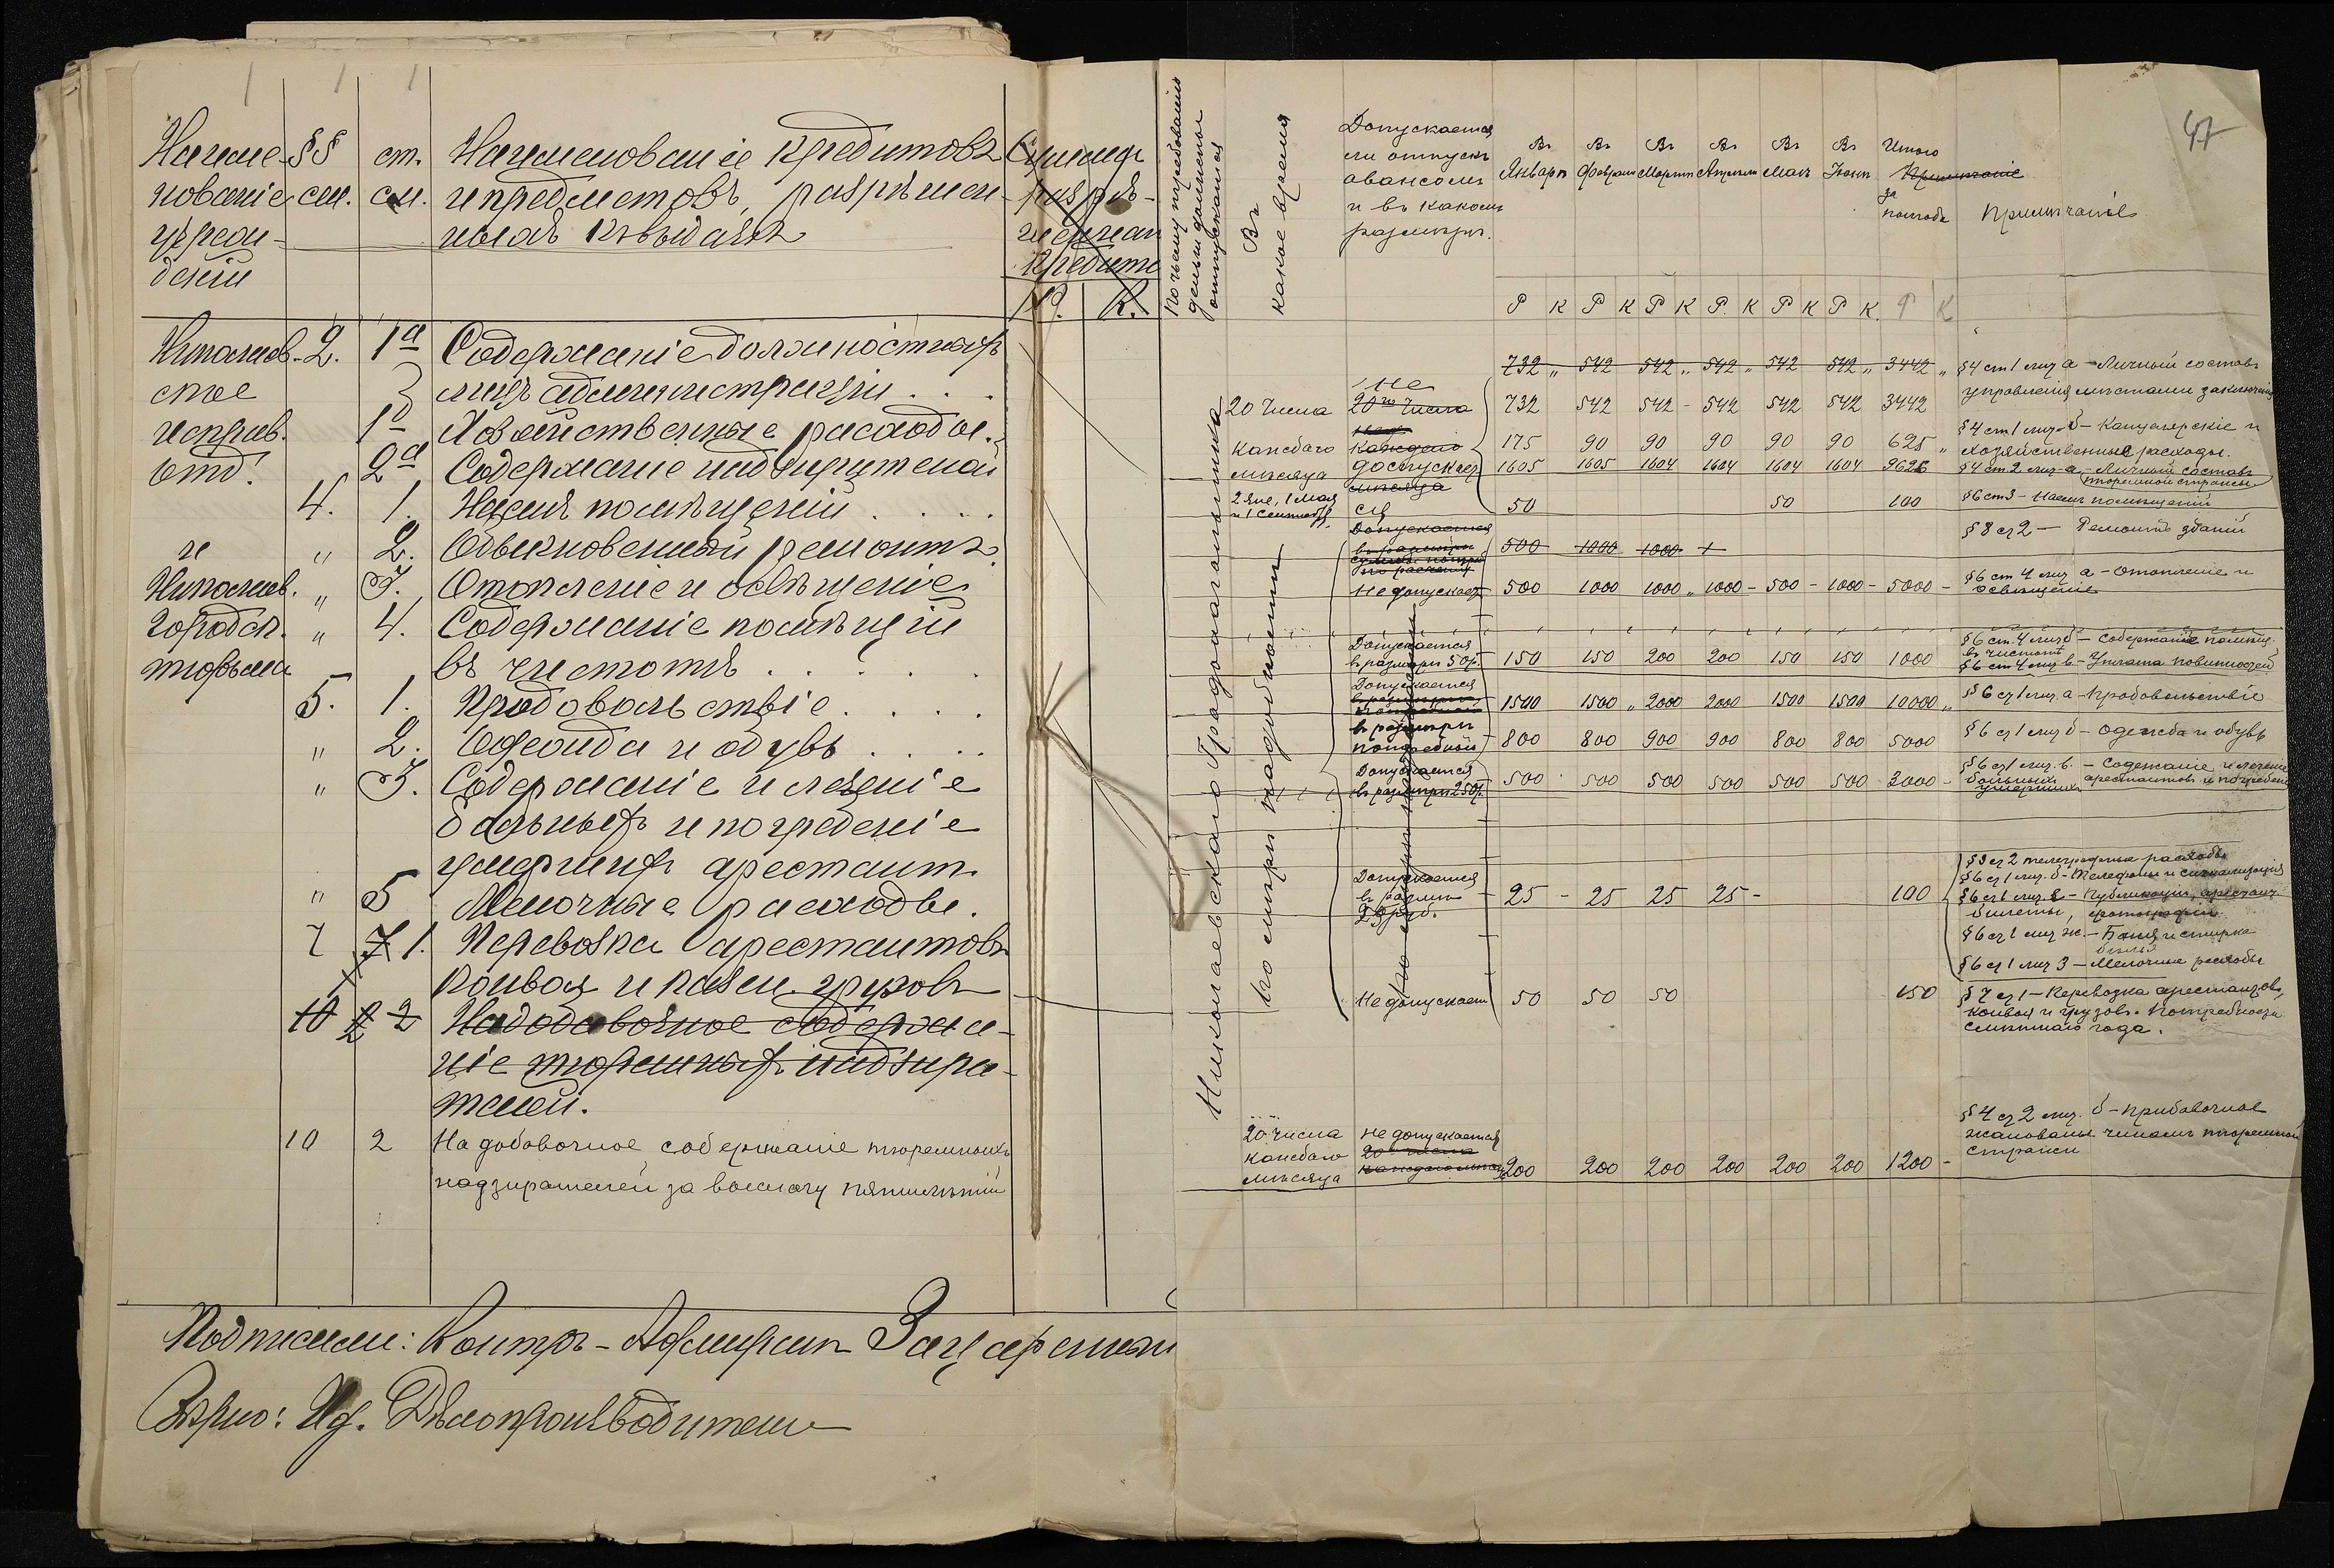 47
Наиме-
нованіе
учреж-
деній
§§
см.
ст.
см.
Наименованіе кредитовъ
и предметовъ, разрѣшен-
ныхъ къ выдачѣ
Р. К.
По чьему требованію
деньги должны
отпускаются
Въ
какое время
Допускается
ли отпускъ
авансомъ
и въ какомъ
размѣрѣ.
Въ Январѣ
Въ Февралѣ
Въ Мартѣ
Въ Апрѣлѣ
Въ Маѣ
Въ Іюнѣ
Итого
за
полгода
Примѣчаніе
Примѣчаніе
Р К Р К Р К Р. К Р К Р К. Р К
Николаев-
ское
исправ.
отд.
и
Николаев.
городск.
тюрьма
2. 1а Содержаніе должностныхъ
лицъ администраціи . . .
1б Хозяйственные расходы.
2а Содержаніе надзирателей
4. 1. Наемъ помѣщеній . . . .
" 2. Обыкновенный ремонтъ
" 3. Отопленіе и освѣщеніе
" 4. Содержаніе помѣщеній
въ чистотѣ . . . . .
5. 1. Продовольствіе . . . .
" 2. Одежда и обувь . . . .
" 3. Содержаніе и леченіе
больныхъ и погребеніе
умершихъ арестант.
" 5 Мелочные расходы.
7 1. Перевозка арестантовъ
конвоя и казен. грузовъ
10 2 На добавочное содержа-
ніе тюремныхъ надзира-
телей.
10 2 На добовочное содержаніе тюремныхъ
надзирателей за выслугу пятилѣтій
Николаевскаго Градоначальника
по мѣрѣ надобности
732 " 542 542 " 542 " 542 542 " 3442 "
20 числа
каждаго
мѣсяца
Не
20го числа
каждаго
допускает
мѣсяца
732 542 542 - 542 542 542 3442
175 90 90 90 90 90 625 "
1605 1605 1604 1604 1604 1604 9626
2 янв, 1 мая
и 1 Сентября
50 50 100
Допускается
500 1000 1000
Не допускает
500 1000 1000 " 1000 - 500 - 1000 - 5000 -
Допускается
въ размѣрѣ 50р.
150 150 200 200 150 150 1000
Допускается
въ размѣрѣ
1500 1500 " 2000 2000 1500 1500 10000 "
800 800 900 900 800 800 5000
Допускается
въ размѣрѣ 250р.
500 500 500 500 500 500 3000 -
Допускается
въ размѣр
25 руб.
25 - 25 25 25 - 100
Не допускает
50 50 50 150
20 числа
каждаго
мѣсяца
Не допускается
20го числа
200 200 200 200 200 200 1200 -
§4 ст 1 лит а - Личный составъ
управленія мѣстами заключенія
§4 ст 1 лит б - Канцелярскіе и
хозяйственные расходы.
§4 ст 2 лит а - Личный составъ
тюремной стражи
§6 ст 3 - Наемъ помѣщеній
§ 8 ст 2 - Ремонтъ зданій
§6 ст 4 лит а - Отопленіе и
освѣщеніе
§6 ст. 4 лит б - Содержаніе помѣщ.
въ чистотѣ
§6 ст 4 лит в - Уплата повинностей
§ 6 ст 1 лит. а - Продовольствіе
§ 6 ст 1 лит б - Одежда и обувь
§ 6 ст 1 лит. в. - Содежаніе и леченіе
больныхъ арестантовъ и погребеніе
умершихъ
§ 3 ст 2 телеграфные расходы
§6 ст 1 лит. д - Телефоны и сигнализація
билеты, фотографіи
§ 6 ст 1 лит ж. - Баня и стирка
бѣлья
§ 6 ст 1 лит З - Мелочные расходы
§ 7 ст 1 - Перевозка арестантовъ,
конвоя и грузовъ. Потребности
смѣтнаго года.
§ 4 ст 2 лит. б - прибавочное
жалованье чинамъ тюремной
стражи
Подписали: Контръ-Адмиралъ Зацаренный
Вѣрно: И.д. Дѣлопроизводителя